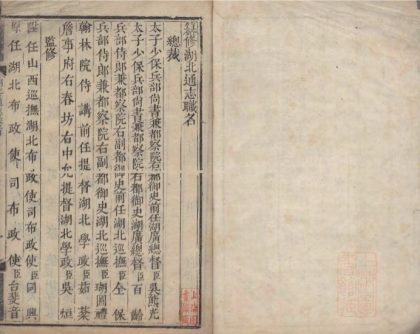 續修湖北通志職名
總裁
太子少保兵部尚書兼都察院右都御史前任湖廣總督臣吳熊光
太子少保兵部尚書兼都察院右都御史湖廣總督臣百齡
兵部侍郎兼都察院右副都御史前任湖北巡撫臣全保
兵部侍郎兼都察院右副都御史湖北巡撫臣
翰林院侍講前任提督湖北學政臣茹棻
詹事府右春坊右中允提督湖北學政臣吳烜
監修
任山西巡撫湖北布政使司布政使臣同興
任湖北布政使司布政使臣